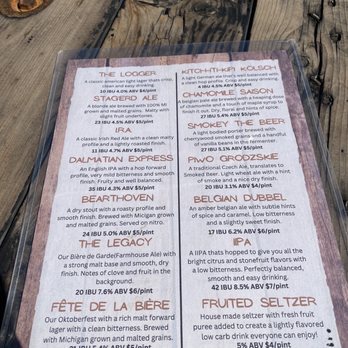 THE LOGGER
A classic american light lager thats crisp,
clean and easy drinking.
10 IBU 4.0% ABV $4/pint
STAGERD ALE
A blonde ale brewed with 100% MI
grown and malted grains. Malty with
slight fruit undertones.
23 IBU 4.5% ABV $5/pint
IRA
A classic Irish Red Ale with a clean malty
profile and a lightly roasted finish.
31 IBU 4.7% ABV $5/pint
DALMATIAN EXPRESS
An English IPA with a hop forward
profile, very mild bitterness and smooth
finish. Fruity and well balanced.
35 IBU 4.3% ABV $5/pint
BEARTHOVEN
A dry stout with a roasty profile and
smooth finish. Brewed with Micigan grown
and malted grains. Served on nitro.
24 IBU 5.0% ABV $5/pint
THE LEGACY
Our Bière de Garde(Farmhouse Ale) with
a strong malt base and smooth, dry
finish. Notes of clove and fruit in the
background.
20 IBU 7.6% ABV $6/pint
FÊTE DE LA BIÈRE
Our Oktoberfest with a rich malt forward
lager with a clean bitterness. Brewed
with Michigan grown and malted grains.
ABV $5/pint
KITCH-ITI-KIPI KOLSCH
A light German ale that's well balanced with
a clean hop profile. Crisp and easy
drinking.
ABV $5/pint
CHAMOMILE SAISON
A belgian pale ale brewed with a heaping dose
of chamomile and a touch of maple syrup to
finish it out. Dry, floral and hints of spice.
27 IBU 5.4% ABV $5/pint
SMOKEY THE BEER
A light bodied porter brewed with
cherrywood smoked grains and a handful
of vanilla beans in the fermenter.
27 IBU 5.1% ABV $5/pint
PIWO GRODZSKIE
A traditional Czech Ale, translates to
Smoked Beer. Light wheat ale with a hint
of smoke and a nice dry finish.
20 IBU 3.1% ABV $4/pint
BELGIAN DUBBEL
An amber belgian ale with subtle hints
of spice and caramel. Low bitterness
and a slightly sweet finish.
17 IBU 6.2% ABV $6/pint
IIPA
A IIPA thats hopped to give you all the
bright citrus and stonefruit flavors with
a low bitterness. Perfectly balanced,
smooth and easy drinking.
42 IBU 8.5% ABV $7/pint
FRUITED SELTZER
House made seltzer with fresh fruit
puree added to create a lightly flavored
low carb drink everyone can enjoy!
5% ABV $4/pint